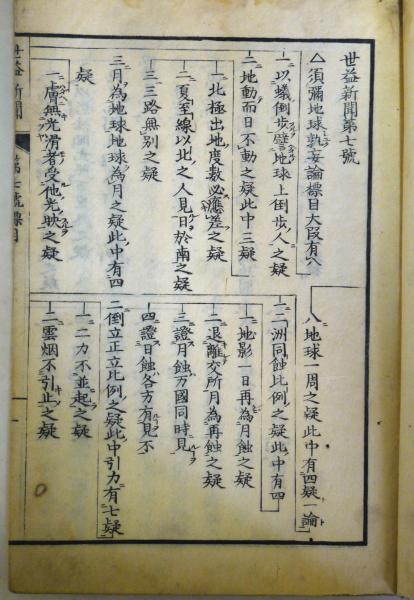 世益新聞第七號
△須彌地球孰妄論標目大段有八
一以蟻倒步譬地球上倒步人之疑
二地動而日不動之疑此中三疑
一北極出地度數必應差之疑
二夏至線以北之人見日於南之疑
三三路無別之疑
三月為地球地球為月之疑此中有四
疑
一膚無光滑者受他光映之疑
八地球一周之疑此中有四疑一論
二二洲同蝕比例之疑此中有四
一地影一日再為月蝕之疑
二退離交所月為再蝕之疑
三證月蝕万國同時見
四證日蝕各方有見不
二倒立正立比例之疑此中引力有七疑
一二力不並起之疑
二雲烟不引止之疑
世益新聞 第七號標目